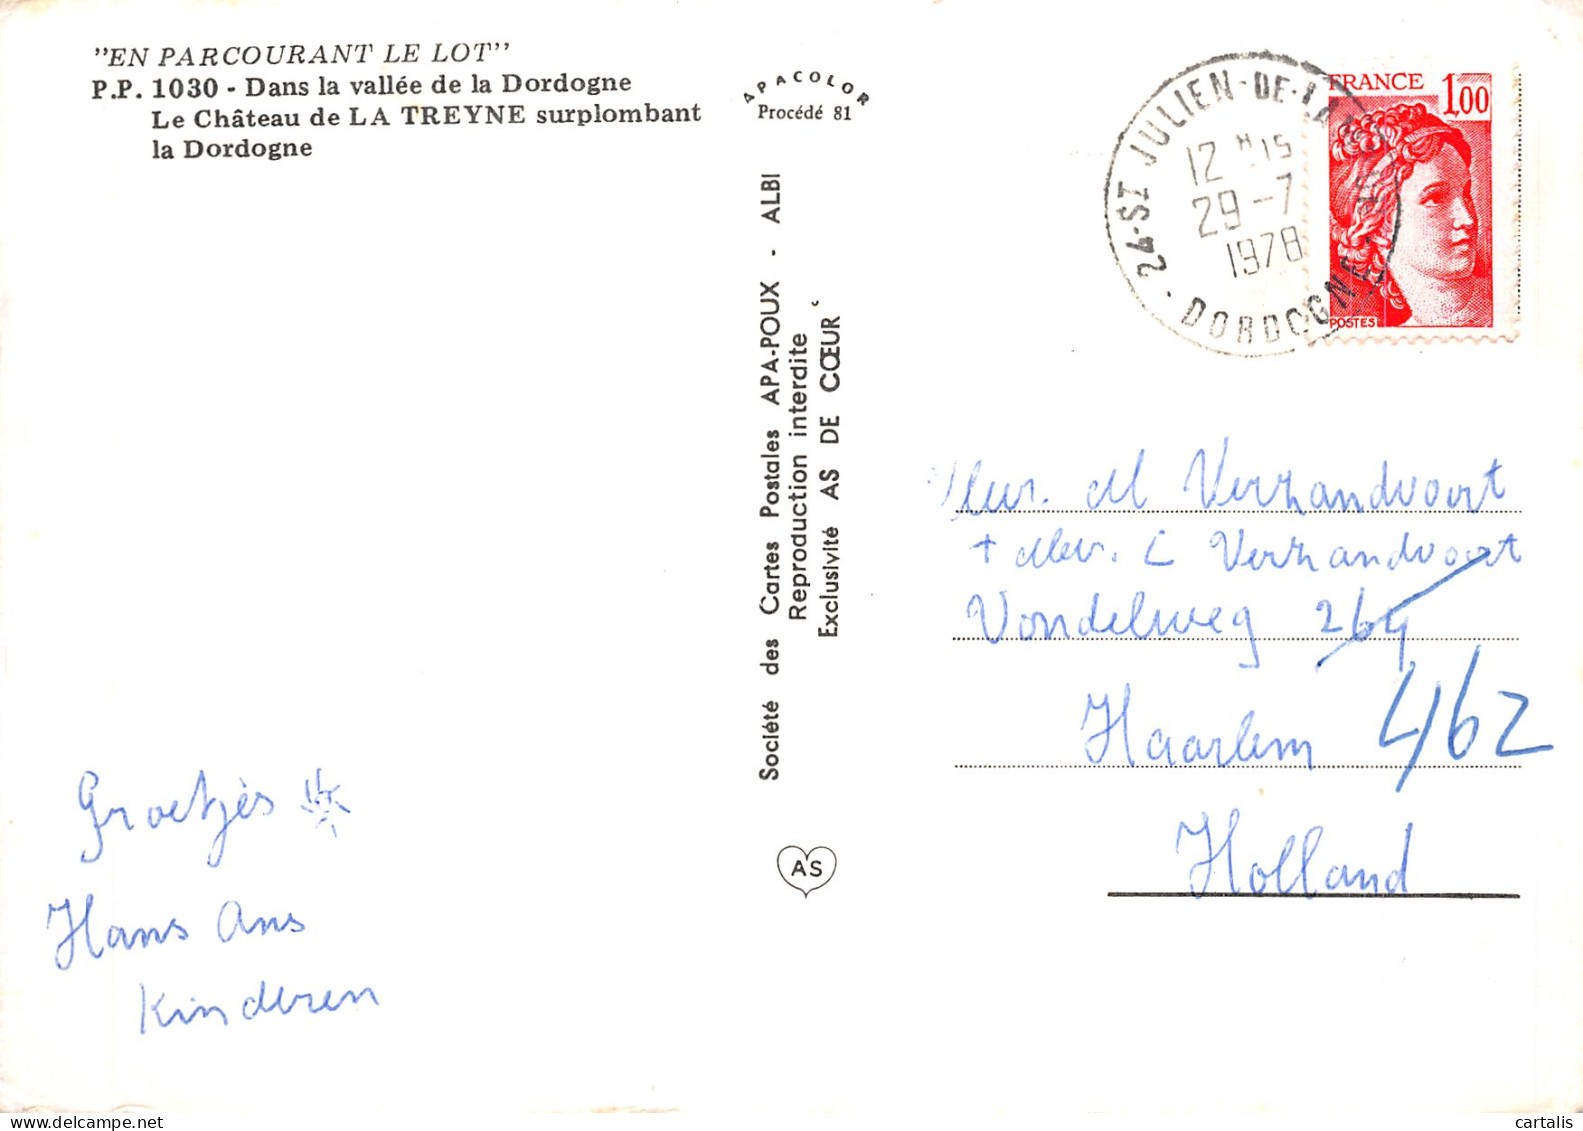 "EN PARCOURANT LE LOT"
P.P. 1030 - Dans la vallée de la Dordogne
Le Château de LA TREYNE surplombant
la Dordogne
APACOLOR
Procédé 81
Société des Cartes Postales APA-POUX - ALBI
Reproduction interdite
Exclusivité AS DE CŒUR
AS
24-ST JULIEN-DE-LAMPON
12 H 15
29-7
1978
DORDOGNE
FRANCE 1,00
POSTES
Mevr. M Verzandvoort
+ Mevr. C Verzandvoort
Vondelweg 264
Haarlem 462
Holland
Groetjes
Hans Ans
Kinderen
cartalis